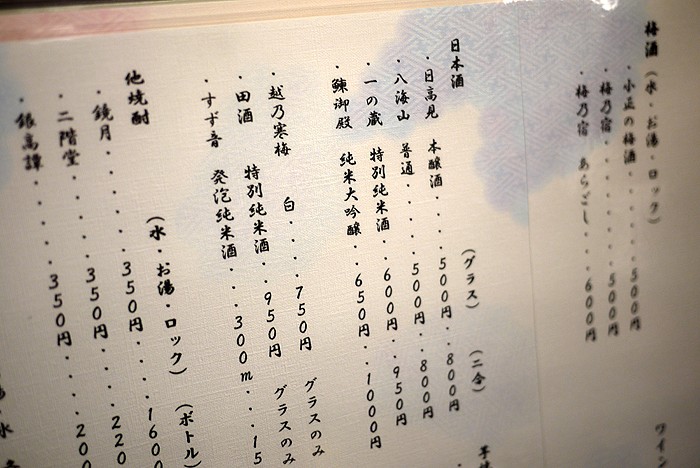 梅酒(水・お湯・ロック)
・小正の梅酒・・・・・500円
・梅乃宿・・・・・・・500円
・梅乃宿 あらごし・・・600円
ワイン
日本酒 (グラス) (二合)
・日高見 本醸酒・・・・500円・・800円
・八海山 普通・・・・・500円・・800円
・一の蔵 特別純米酒・・600円・・950円
・鰊御殿 純米大吟醸・・650円・・1000円
・越乃寒梅 白・・・・750円 グラスのみ
・田酒 特別純米酒・・950円 グラスのみ
・すず音 発泡純米酒・・・300m・・15
他焼酎 (水・お湯・ロック) (ボトル)
・鏡月・・・・・・350円・・・・160
・二階堂・・・・・350円・・・・220
・銀高譚・・・・・350円・・・・20